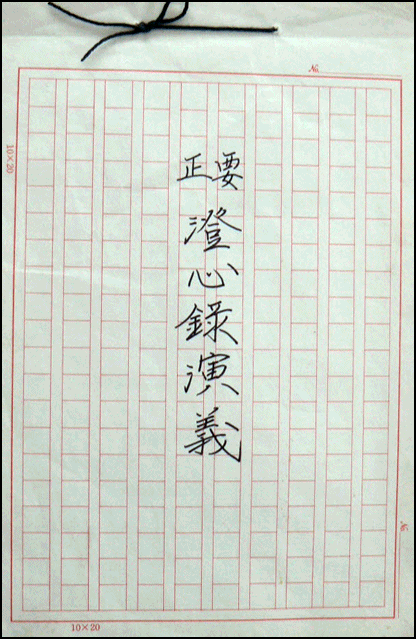 No.
10×20
要正
澄心錄演義
No.
10×20